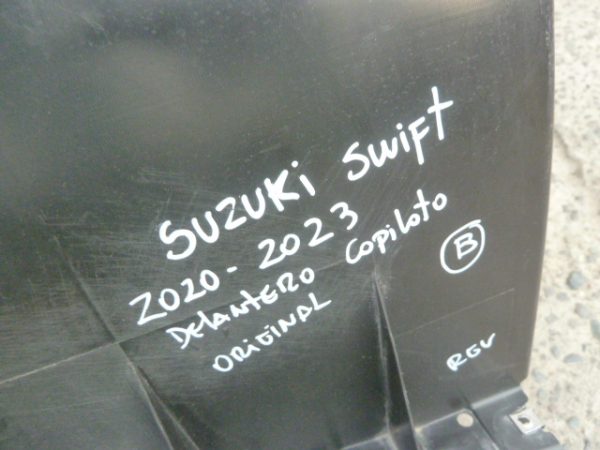 SUZUKI SWIFT
2020-2023
DELANTERO COPILOTO
ORIGINAL
B
REV